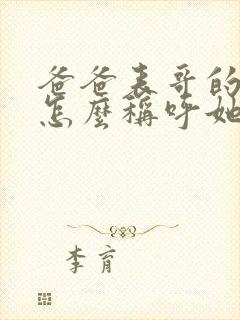 爸爸表哥的
怎麼稱呼她
李育